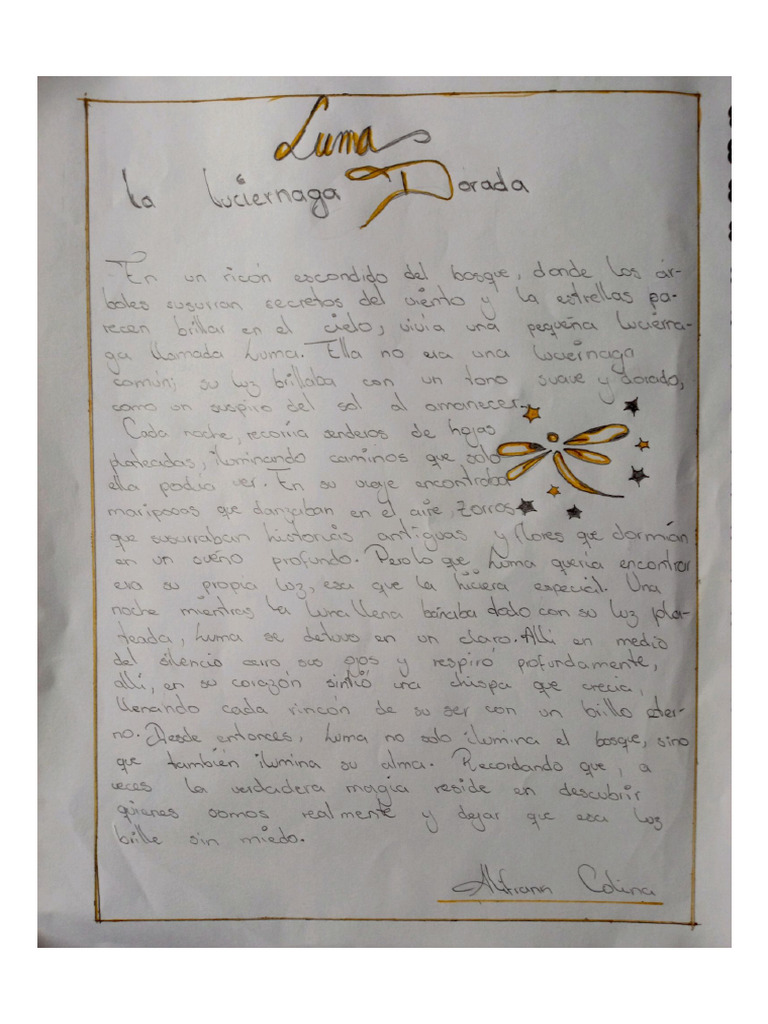 Luma
La Luciérnaga Dorada
En un ricón escondido del bosque, donde los ár-
boles susurran secretos del viento y la estrellas pa-
recen brillar en el cielo, vivía una pequeña lucierna-
ga llamada Luma. Ella no era una luciérnaga
común; su luz brillaba con un tono suave y dorado,
como un suspiro del sol al amanecer.
Cada noche, recorría senderos de hojas
plateadas, iluminando caminos que solo
ella podía ver. En su viaje encontraba
mariposas que danzaban en el aire, zorros
que susurraban historias antiguas y flores que dormían
en un sueño profundo. Pero lo que Luma quería encontrar
era su propia luz, esa que la hiciera especial. Una
noche mientras la luna llena bañaba dodo con su luz pla-
teada, Luma se detuvo en un claro. Allí en medio
del silencio cerro sus ojos y respiró profundamente,
allí, en su corazón sintió una chispa que crecia,
llenando cada rincón de su ser con un brillo eter-
no. Desde entonces, Luma no solo ilumina el bosque, sino
que también ilumina su alma. Recordando que, a
veces la verdadera magia reside en descubrir
quienes somos realmente y dejar que esa luz
brille sin miedo.
Colina